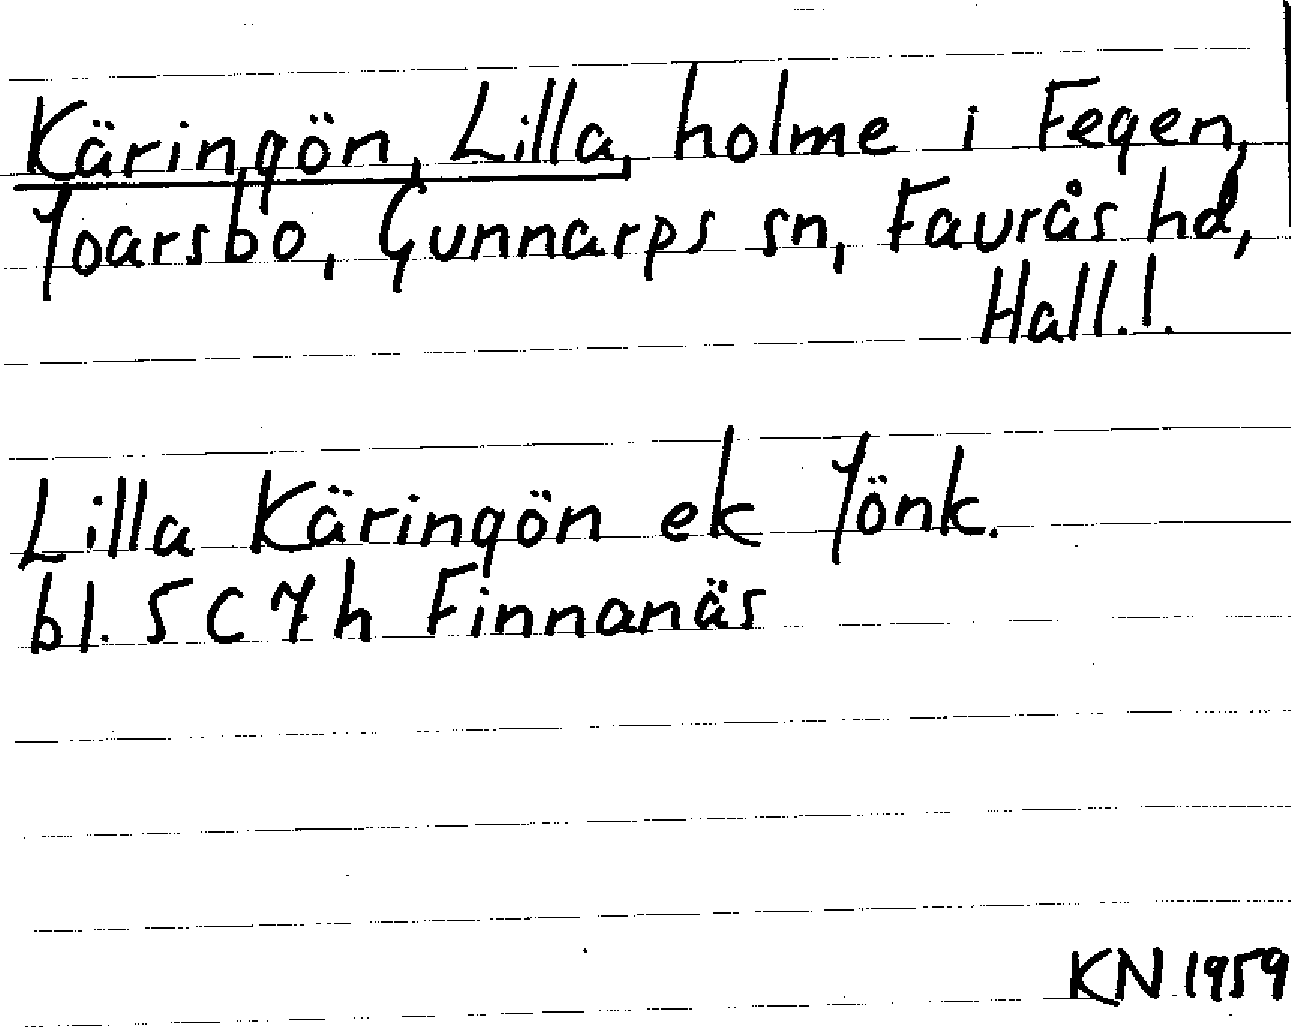 Käringön, Lilla, holme i Fegen,
Joarsbo, Gunnarps sn, Faurås hd,
Hall.!.
Lilla Käringön ek Jönk.
bl. 5 C 7 h Finnanäs
KN 1959